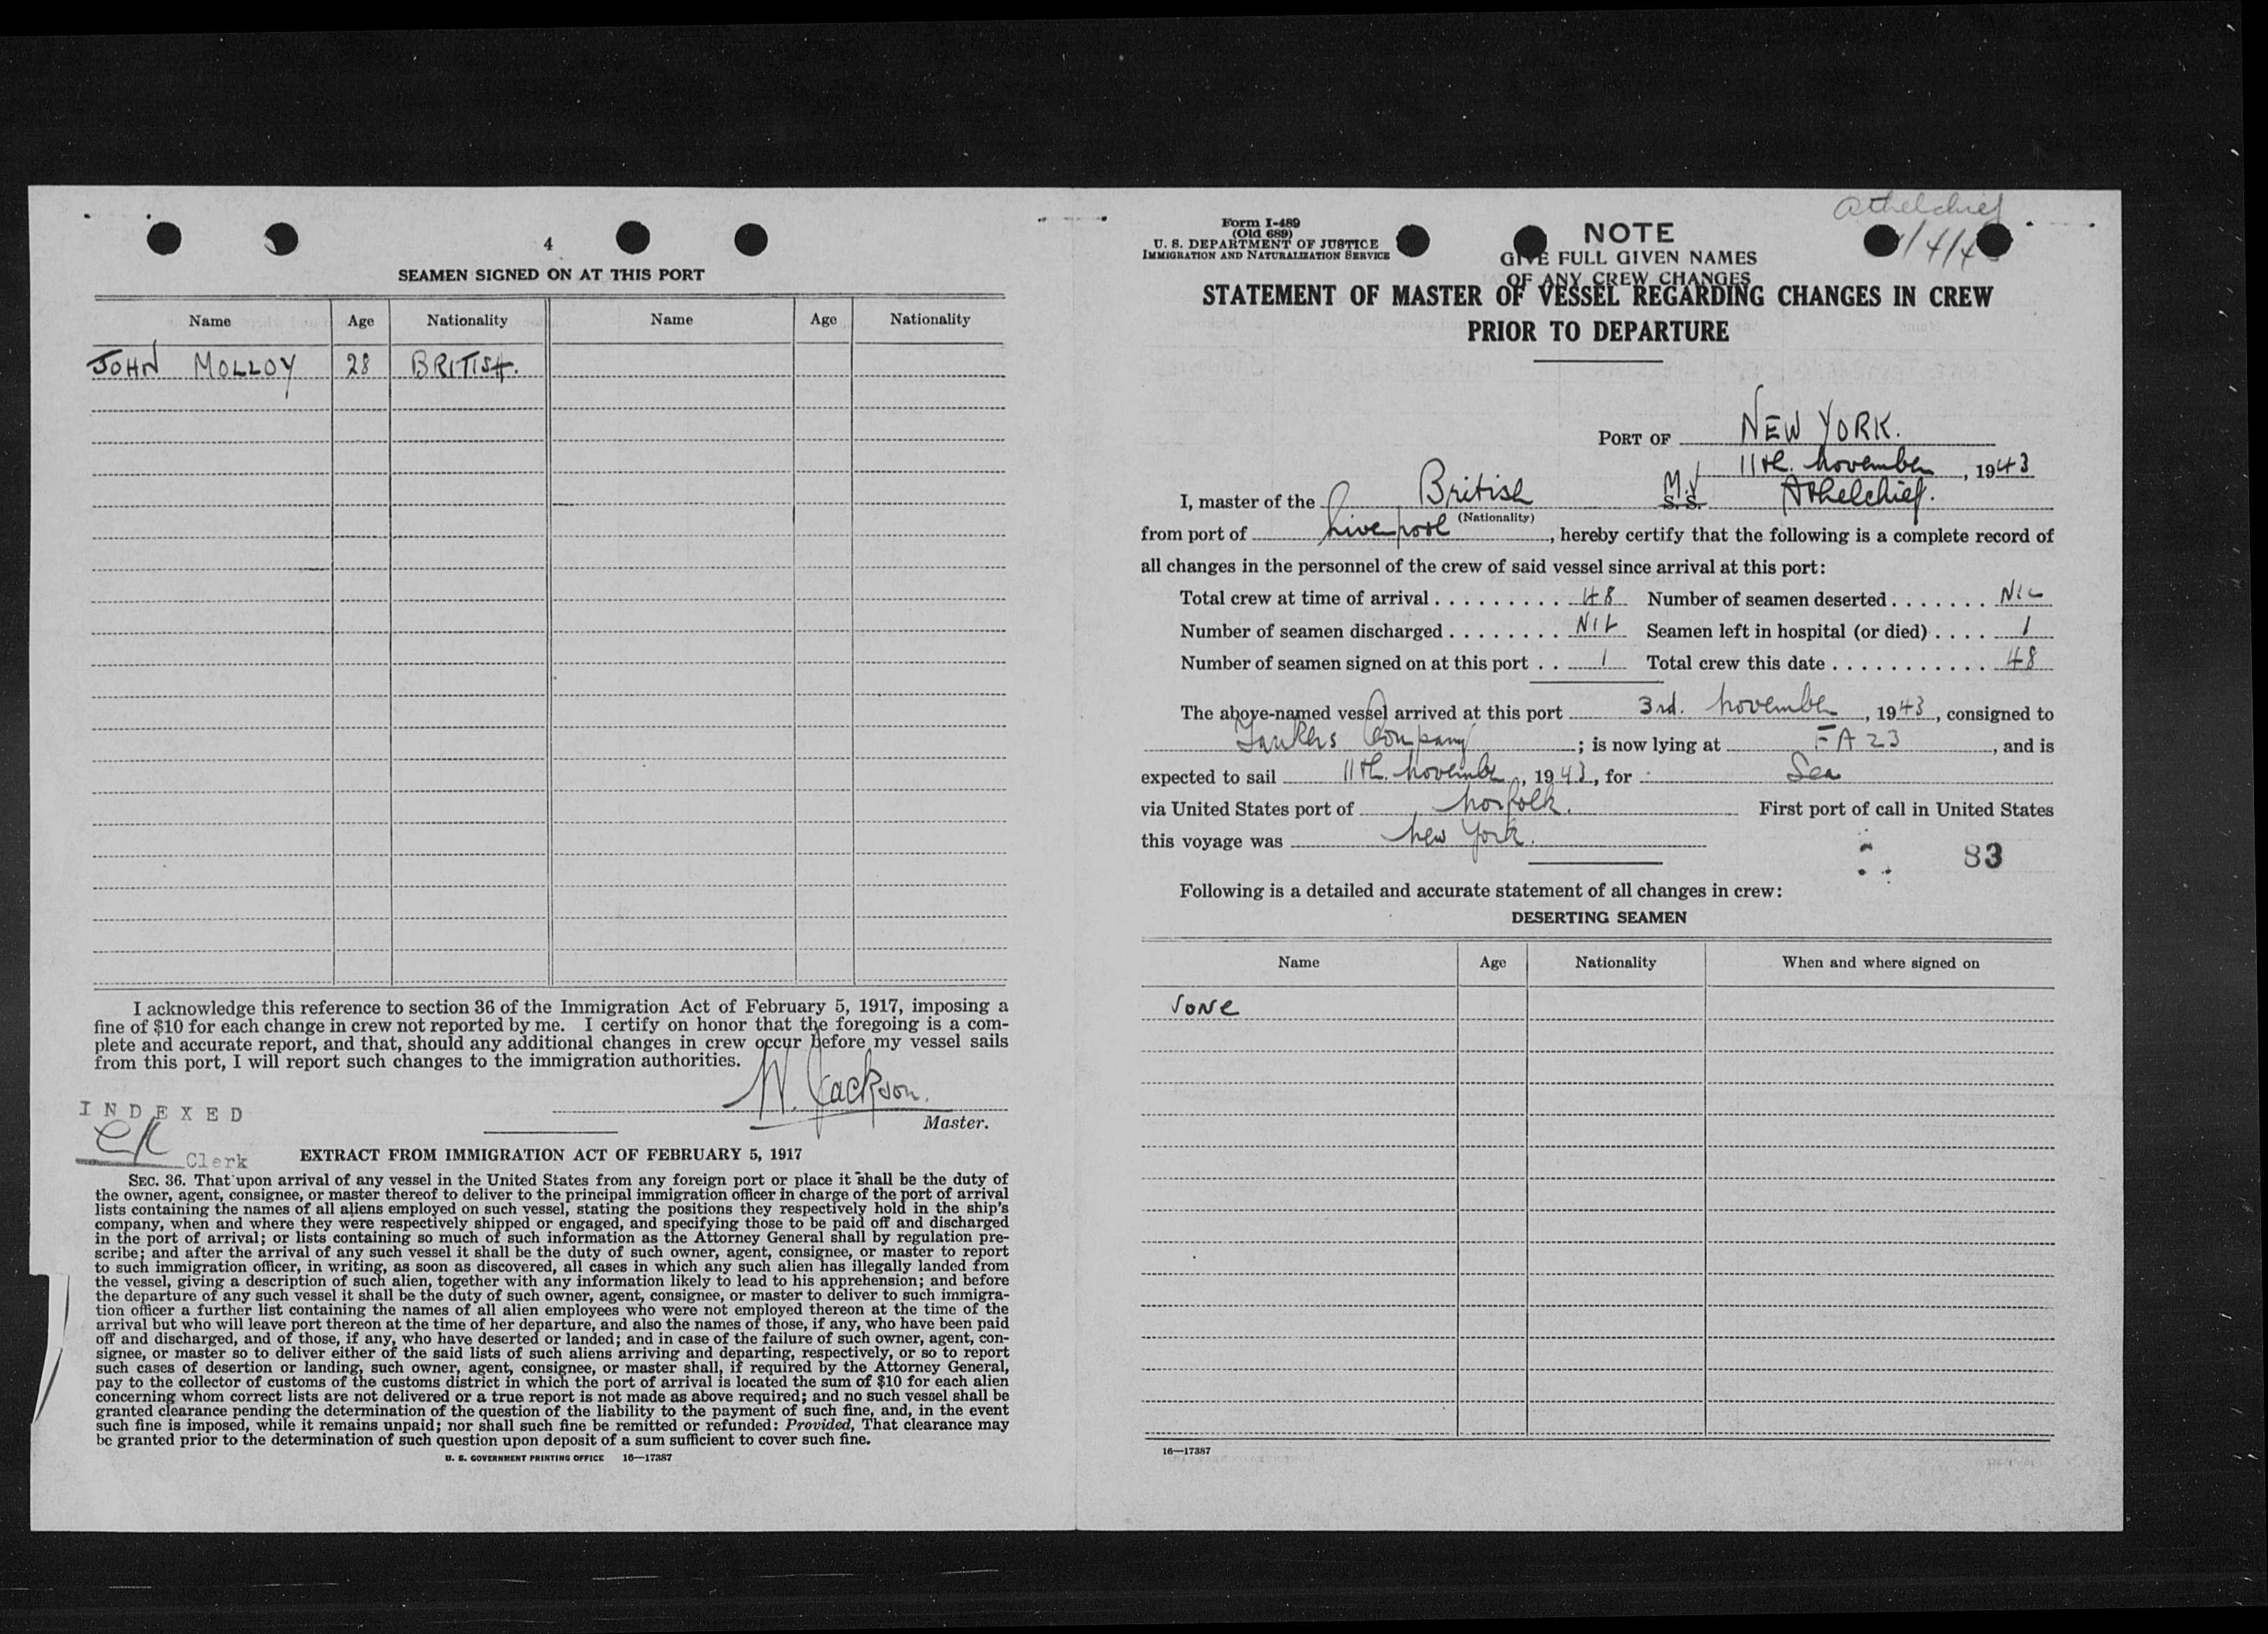 4
SEAMEN SIGNED ON AT THIS PORT
Name Age Nationality Name Age Nationality
JOHN MOLLOY 28 BRITISH.
I acknowledge this reference to section 36 of the Immigration Act of February 5, 1917, imposing a
fine of $10 for each change in crew not reported by me. I certify on honor that the foregoing is a com-
plete and accurate report, and that, should any additional changes in crew occur before my vessel sails
from this port, I will report such changes to the immigration authorities.
W. Jackson.
Master.
INDEXED
Clerk
EXTRACT FROM IMMIGRATION ACT OF FEBRUARY 5, 1917
SEC. 36. That upon arrival of any vessel in the United States from any foreign port or place it shall be the duty of
the owner, agent, consignee, or master thereof to deliver to the principal immigration officer in charge of the port of arrival
lists containing the names of all aliens employed on such vessel, stating the positions they respectively hold in the ship's
company, when and where they were respectively shipped or engaged, and specifying those to be paid off and discharged
in the port of arrival; or lists containing so much of such information as the Attorney General shall by regulation pre-
scribe; and after the arrival of any such vessel it shall be the duty of such owner, agent, consignee, or master to report
to such immigration officer, in writing, as soon as discovered, all cases in which any such alien has illegally landed from
the vessel, giving a description of such alien, together with any information likely to lead to his apprehension; and before
the departure of any such vessel it shall be the duty of such owner, agent, consignee, or master to deliver to such immigra-
tion officer a further list containing the names of all alien employees who were not employed thereon at the time of the
arrival but who will leave port thereon at the time of her departure, and also the names of those, if any, who have been paid
off and discharged, and of those, if any, who have deserted or landed; and in case of the failure of such owner, agent, con-
signee, or master so to deliver either of the said lists of such aliens arriving and departing, respectively, or so to report
such cases of desertion or landing, such owner, agent, consignee, or master shall, if required by the Attorney General,
pay to the collector of customs of the customs district in which the port of arrival is located the sum of $10 for each alien
concerning whom correct lists are not delivered or a true report is not made as above required; and no such vessel shall be
granted clearance pending the determination of the question of the liability to the payment of such fine, and, in the event
such fine is imposed, while it remains unpaid; nor shall such fine be remitted or refunded: Provided, That clearance may
be granted prior to the determination of such question upon deposit of a sum sufficient to cover such fine.
U. S. GOVERNMENT PRINTING OFFICE 16—17387
Athelchief
Form I-489
(Old 689)
U. S. DEPARTMENT OF JUSTICE
IMMIGRATION AND NATURALIZATION SERVICE
NOTE
GIVE FULL GIVEN NAMES
OF ANY CREW CHANGES
STATEMENT OF MASTER OF VESSEL REGARDING CHANGES IN CREW
PRIOR TO DEPARTURE
PORT OF NEW YORK.
11th. November, 1943
I, master of the British M.V S.S. Athelchief.
(Nationality)
from port of Liverpool, hereby certify that the following is a complete record of
all changes in the personnel of the crew of said vessel since arrival at this port:
Total crew at time of arrival . . . . . . . . . 48 Number of seamen deserted . . . . . . . NIL
Number of seamen discharged . . . . . . . . NIL Seamen left in hospital (or died) . . . . 1
Number of seamen signed on at this port . . 1 Total crew this date . . . . . . . . . . . 48
The above-named vessel arrived at this port 3rd. November, 1943, consigned to
Tankers Company; is now lying at FA 23, and is
expected to sail 11th. November, 1943, for Sea
via United States port of Norfolk. First port of call in United States
this voyage was New York.
83
Following is a detailed and accurate statement of all changes in crew:
DESERTING SEAMEN
Name Age Nationality When and where signed on
NONE
16—17387